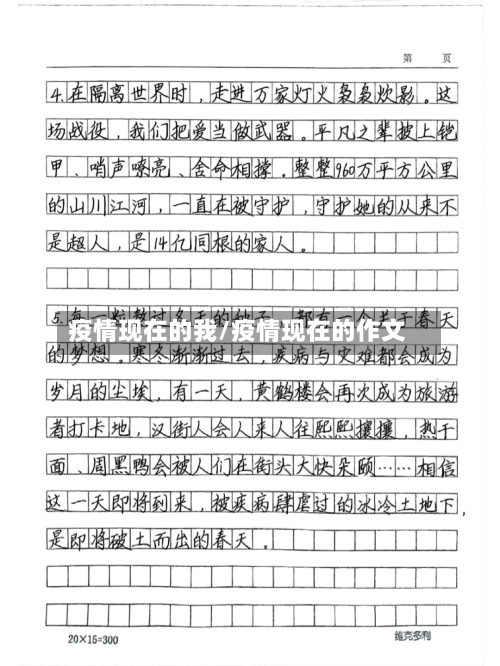 第 页
4.在隔离世界时，走进万家灯火袅袅炊影。这
场战役，我们把爱当做武器。平凡之辈披上铠
甲、哨声嘹亮、舍命相撑。整整960万平方公里
的山川江河，一直在被守护，守护她的从来不
是超人，是14亿同根的家人。
5.每一粒熬过冬天的种子，都有一个关于春天
疫情现在的我/疫情现在的作文
的梦想。寒冬渐渐过去，疾病与灾难都会成为
岁月的尘埃，有一天，黄鹤楼会再次成为旅游
者打卡地，汉街人会人来人往熙熙攘攘，热干
面、周黑鸭会被人们在街头大快朵颐……相信
这一天即将到来，被疾病肆虐过的冰冷土地下，
是即将破土而出的春天。
20×15=300 维克多利